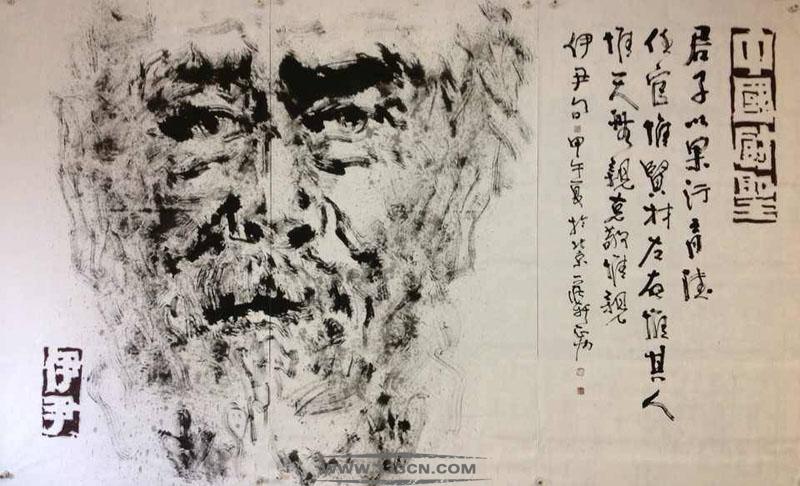 中國廚聖
君子以果行育德
任官惟賢材左右惟其人
惟天無親克敬惟親
伊尹句 甲午夏於北京
伊尹